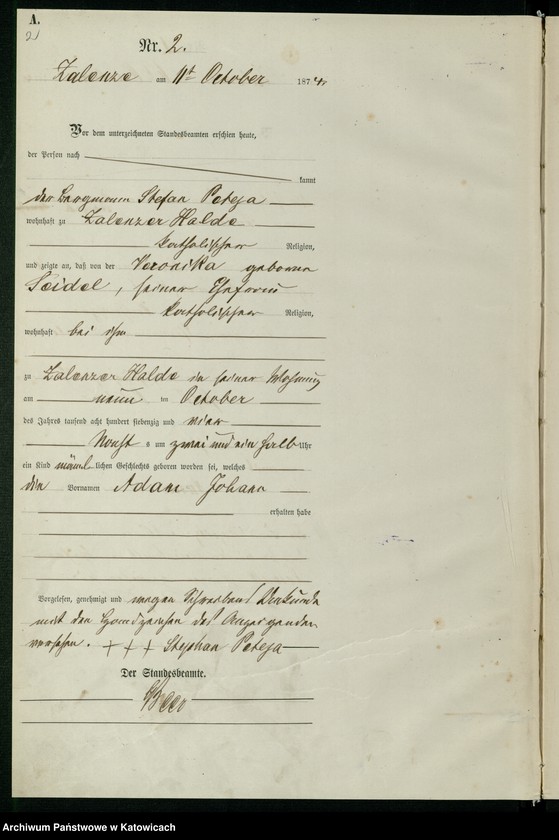 A.
2
Nr. 2.
Zalenze am 11t October 1874
Vor dem unterzeichneten Standesbeamten erschien heute,
der Person nach
kannt
der Bergmann Stefan Peteja
wohnhaft zu Zalenzer Halde
katholischer Religion,
und zeigte an, daß von der Veronika geborene
Seidel, seiner Ehefrau
katholischer Religion,
wohnhaft bei ihm
zu Zalenzer Halde in seiner Wohnung
am neun ten October
des Jahres tausend acht hundert siebenzig und vier
Nachts um zwei und ein halb Uhr
ein Kind männlichen Geschlechts geboren worden sei, welches
die Vornamen Adam Johann
erhalten habe
Vorgelesen, genehmigt und wegen Schreibens Unkunde
mit den Handzeichen des Anzeigenden
versehen. + + + Stephan Peteja
Der Standesbeamte.
Archiwum Państwowe w Katowicach